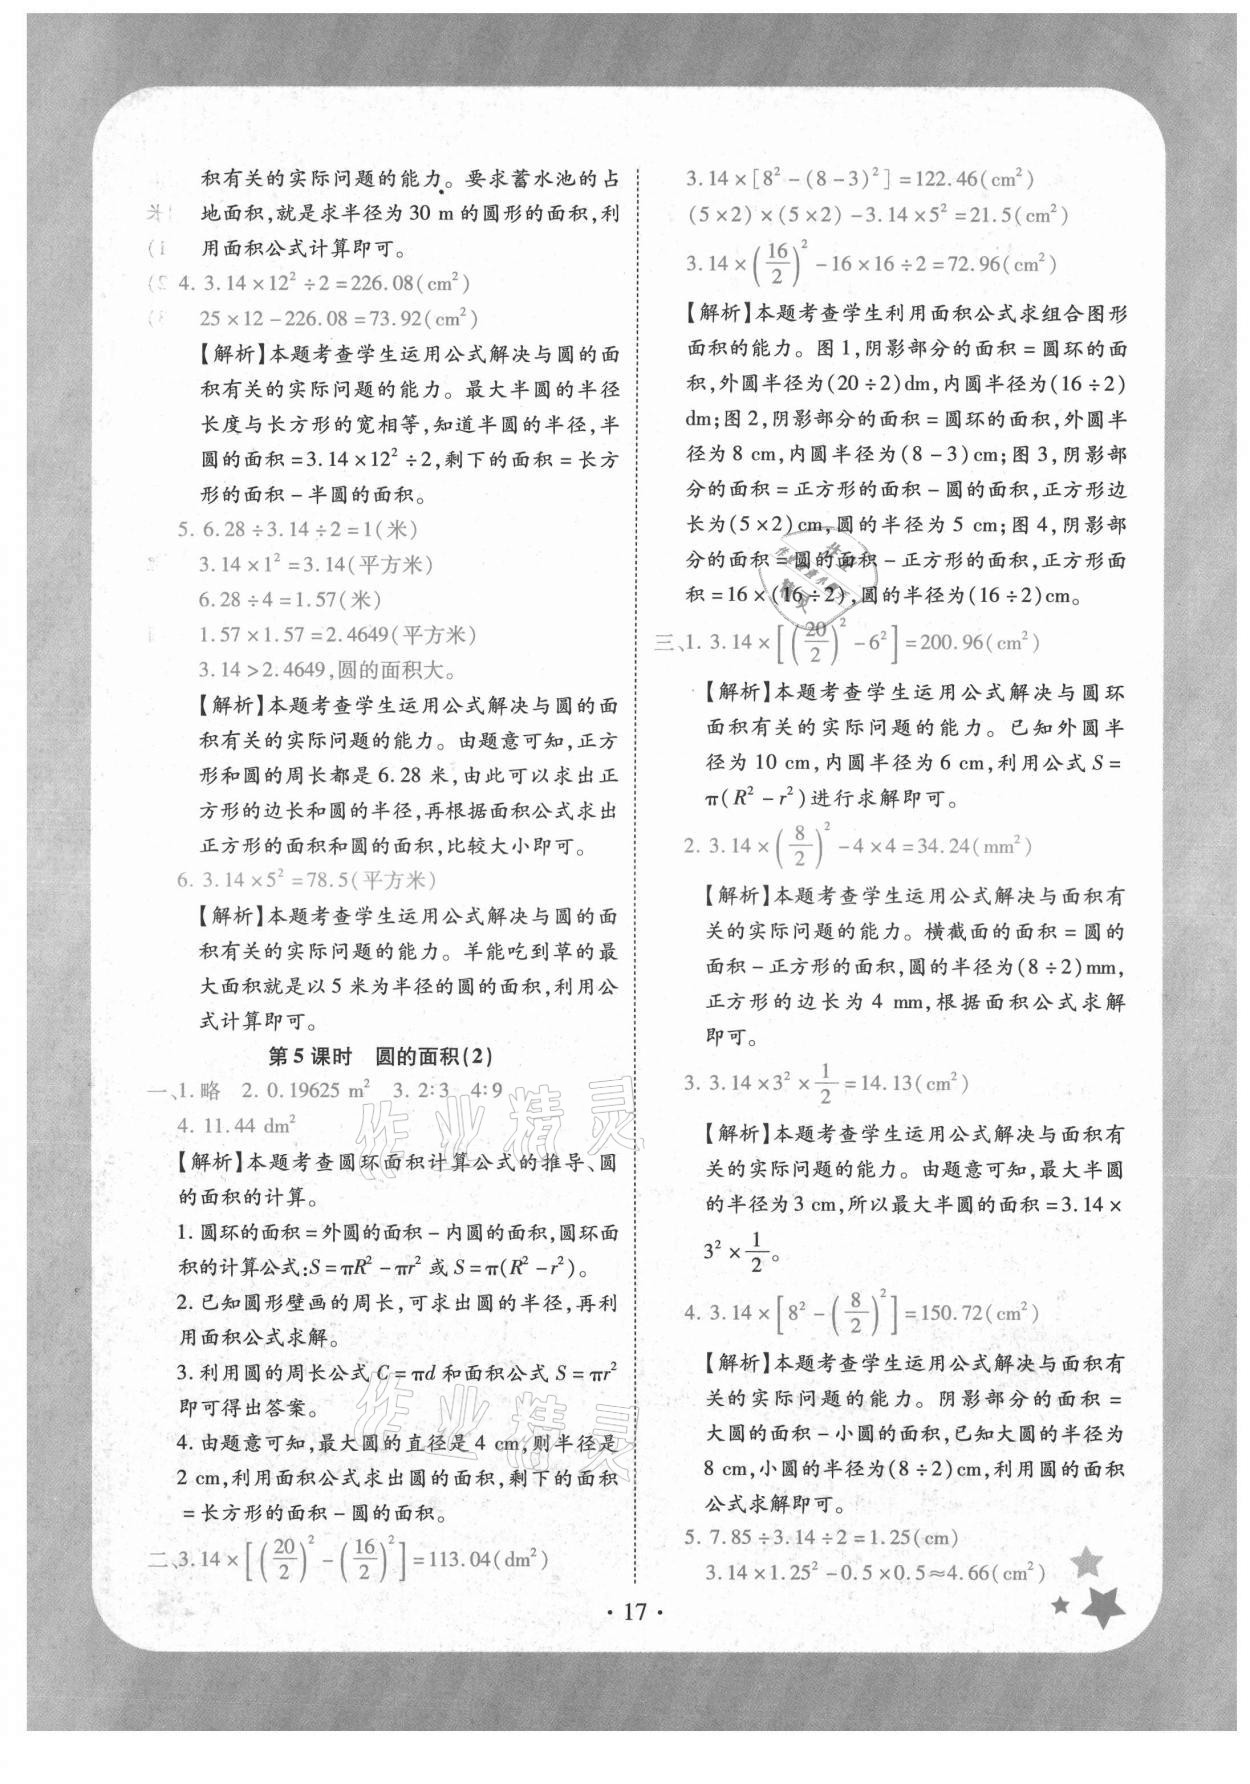 积有关的实际问题的能力。要求蓄水池的占
地面积,就是求半径为 30 m 的圆形的面积,利
用面积公式计算即可。
4. 3.14×12²÷2=226.08(cm²)
25×12-226.08=73.92(cm²)
【解析】本题考查学生运用公式解决与圆的面
积有关的实际问题的能力。最大半圆的半径
长度与长方形的宽相等,知道半圆的半径,半
圆的面积=3.14×12²÷2,剩下的面积=长方
形的面积-半圆的面积。
5. 6.28÷3.14÷2=1(米)
3.14×1²=3.14(平方米)
6.28÷4=1.57(米)
1.57×1.57=2.4649(平方米)
3.14>2.4649,圆的面积大。
【解析】本题考查学生运用公式解决与圆的面
积有关的实际问题的能力。由题意可知,正方
形和圆的周长都是 6.28 米,由此可以求出正
方形的边长和圆的半径,再根据面积公式求出
正方形的面积和圆的面积,比较大小即可。
6. 3.14×5²=78.5(平方米)
【解析】本题考查学生运用公式解决与圆的面
积有关的实际问题的能力。羊能吃到草的最
大面积就是以 5 米为半径的圆的面积,利用公
式计算即可。
第 5 课时 圆的面积(2)
一、1. 略 2. 0.19625 m² 3. 2:3 4:9
4. 11.44 dm²
【解析】本题考查圆环面积计算公式的推导、圆
的面积的计算。
1. 圆环的面积=外圆的面积-内圆的面积,圆环面
积的计算公式:S=πR²-πr² 或 S=π(R²-r²)。
2. 已知圆形壁画的周长,可求出圆的半径,再利
用面积公式求解。
3. 利用圆的周长公式 C=πd 和面积公式 S=πr²
即可得出答案。
4. 由题意可知,最大圆的直径是 4 cm,则半径是
2 cm,利用面积公式求出圆的面积,剩下的面积
=长方形的面积-圆的面积。
二、3.14×[(20/2)²-(16/2)²]=113.04(dm²)
3.14×[8²-(8-3)²]=122.46(cm²)
(5×2)×(5×2)-3.14×5²=21.5(cm²)
3.14×(16/2)²-16×16÷2=72.96(cm²)
【解析】本题考查学生利用面积公式求组合图形
面积的能力。图 1,阴影部分的面积=圆环的面
积,外圆半径为(20÷2)dm,内圆半径为(16÷2)
dm;图 2,阴影部分的面积=圆环的面积,外圆半
径为 8 cm,内圆半径为(8-3)cm;图 3,阴影部
分的面积=正方形的面积-圆的面积,正方形边
长为(5×2)cm,圆的半径为 5 cm;图 4,阴影部
分的面积=圆的面积-正方形的面积,正方形面
积=16×(16÷2),圆的半径为(16÷2)cm。
三、1. 3.14×[(20/2)²-6²]=200.96(cm²)
【解析】本题考查学生运用公式解决与圆环
面积有关的实际问题的能力。已知外圆半
径为 10 cm,内圆半径为 6 cm,利用公式 S=
π(R²-r²)进行求解即可。
2. 3.14×(8/2)²-4×4=34.24(mm²)
【解析】本题考查学生运用公式解决与面积有
关的实际问题的能力。横截面的面积=圆的
面积-正方形的面积,圆的半径为(8÷2)mm,
正方形的边长为 4 mm,根据面积公式求解
即可。
3. 3.14×3²×1/2=14.13(cm²)
【解析】本题考查学生运用公式解决与面积有
关的实际问题的能力。由题意可知,最大半圆
的半径为 3 cm,所以最大半圆的面积=3.14×
3²×1/2。
4. 3.14×[8²-(8/2)²]=150.72(cm²)
【解析】本题考查学生运用公式解决与面积有
关的实际问题的能力。阴影部分的面积=
大圆的面积-小圆的面积,已知大圆的半径为
8 cm,小圆的半径为(8÷2)cm,利用圆的面积
公式求解即可。
5. 7.85÷3.14÷2=1.25(cm)
3.14×1.25²-0.5×0.5≈4.66(cm²)
· 17 ·
作业精灵
作业精灵